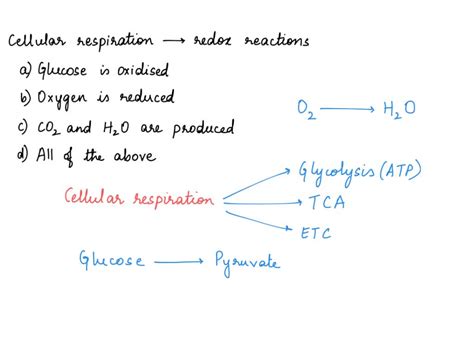 Cellular respiration → redox reactions
a) Glucose is oxidised
b) Oxygen is reduced
c) CO₂ and H₂O are produced
d) All of the above
O₂ → H₂O
Cellular respiration
→ Glycolysis (ATP)
→ TCA
→ ETC
Glucose → Pyruvate